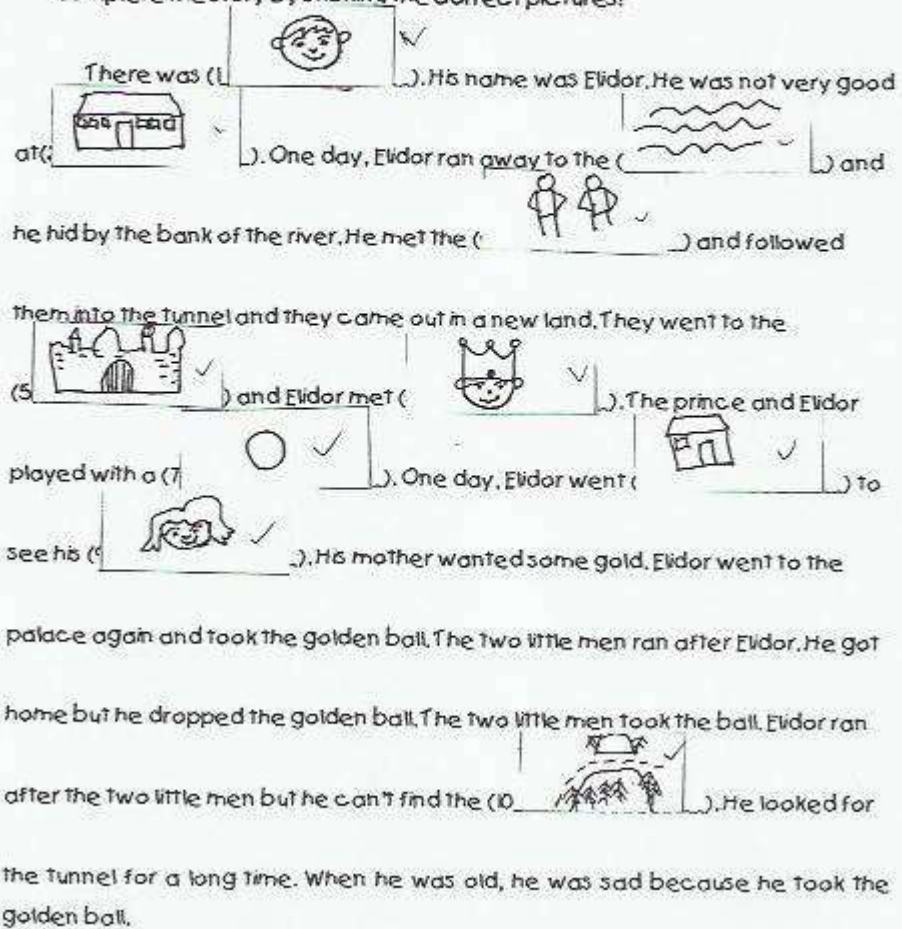 the story by the correct pictures.
There was (1 ). His name was Elidor. He was not very good
at( ). One day, Elidor ran away to the ( ) and
he hid by the bank of the river. He met the ( ) and followed
them into the tunnel and they came out in a new land. They went to the
(5 ) and Elidor met ( ). The prince and Elidor
played with a (7 ). One day, Elidor went ( ) to
see his ( ). His mother wanted some gold. Elidor went to the
palace again and took the golden ball. The two little men ran after Elidor. He got
home but he dropped the golden ball. The two little men took the ball. Elidor ran
after the two little men but he can't find the (10 ). He looked for
the tunnel for a long time. When he was old, he was sad because he took the
golden ball.